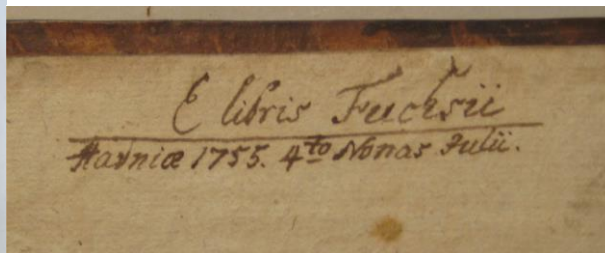 E libris Fuchsii
Havniæ 1755. 4to Nonas Julii.